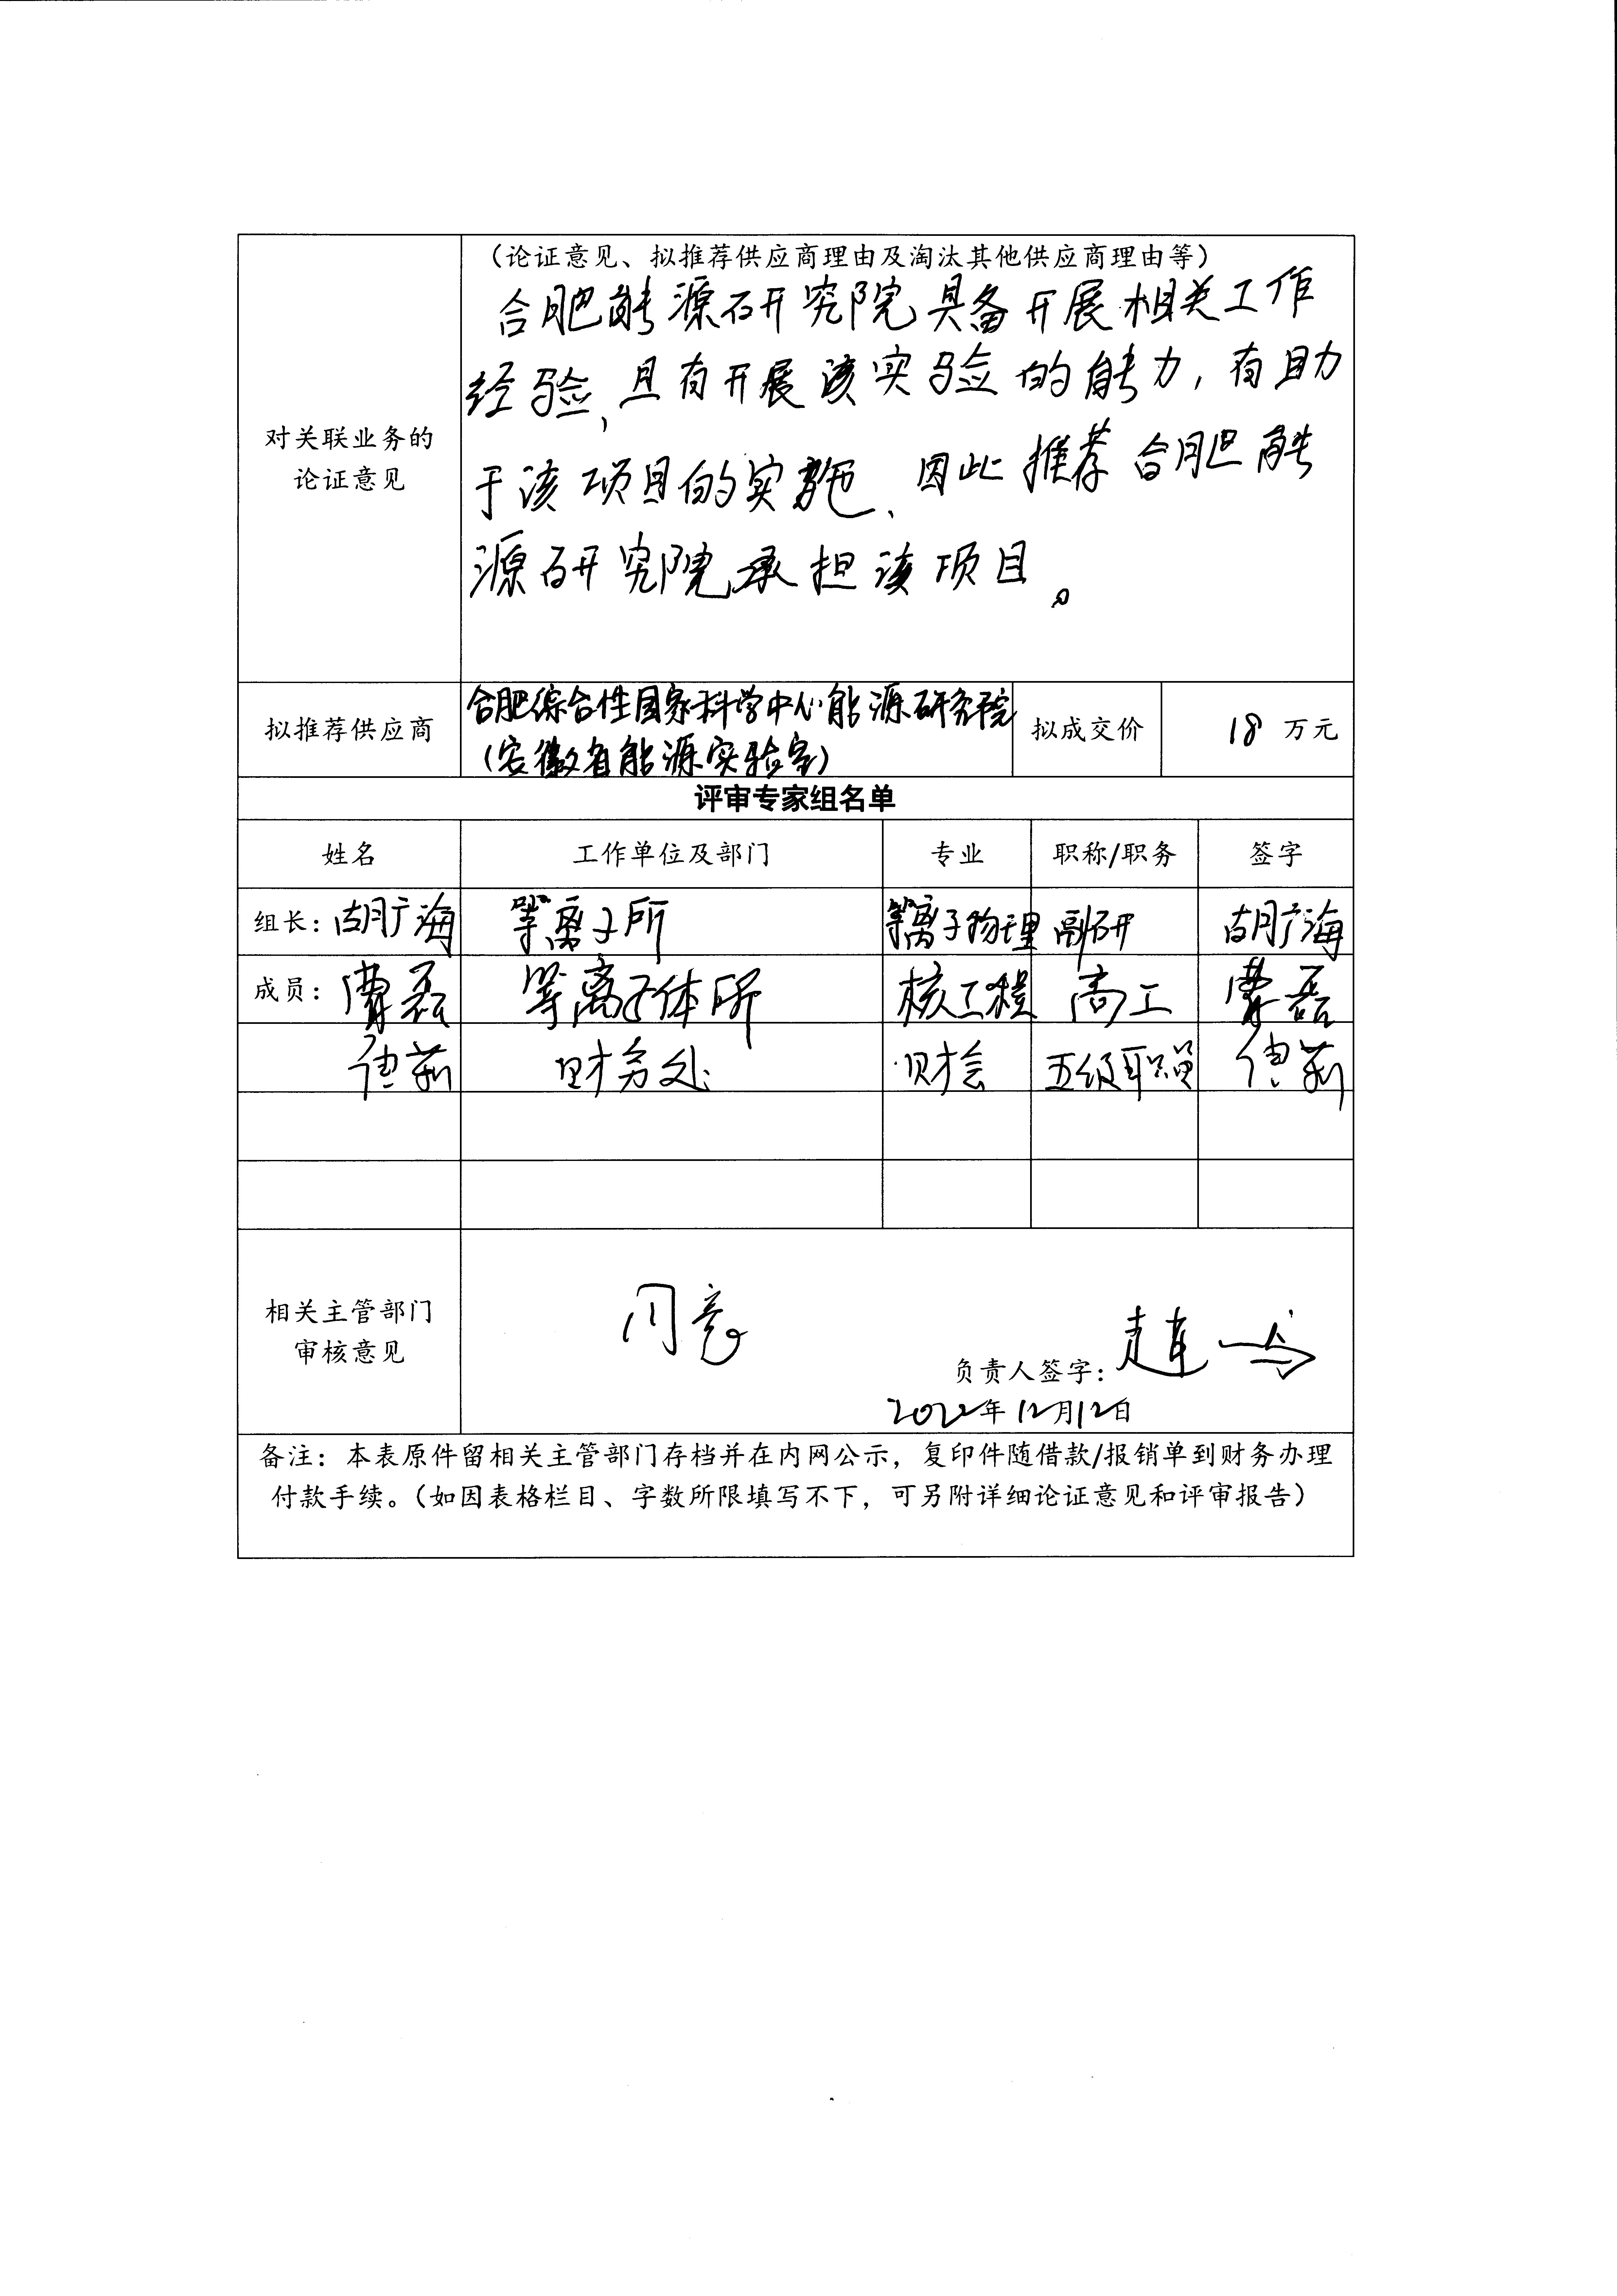 （论证意见、拟推荐供应商理由及淘汰其他供应商理由等）
合肥能源研究院具备开展相关工作
经验，且有开展该实验的能力，有助
于该项目的实施、因此推荐合肥能
源研究院承担该项目。
对关联业务的
论证意见
拟推荐供应商
合肥综合性国家科学中心能源研究院
（安徽省能源实验室）
拟成交价 18 万元
评审专家组名单
姓名 工作单位及部门 专业 职称/职务 签字
组长：胡广海 等离子所 等离子物理 副研 胡广海
成员：曹磊 等离子体所 核工程 高工 曹磊
财务处 财会 五级职员
相关主管部门
审核意见
同意
负责人签字：
2022年12月12日
备注：本表原件留相关主管部门存档并在内网公示，复印件随借款/报销单到财务办理
付款手续。（如因表格栏目、字数所限填写不下，可另附详细论证意见和评审报告）